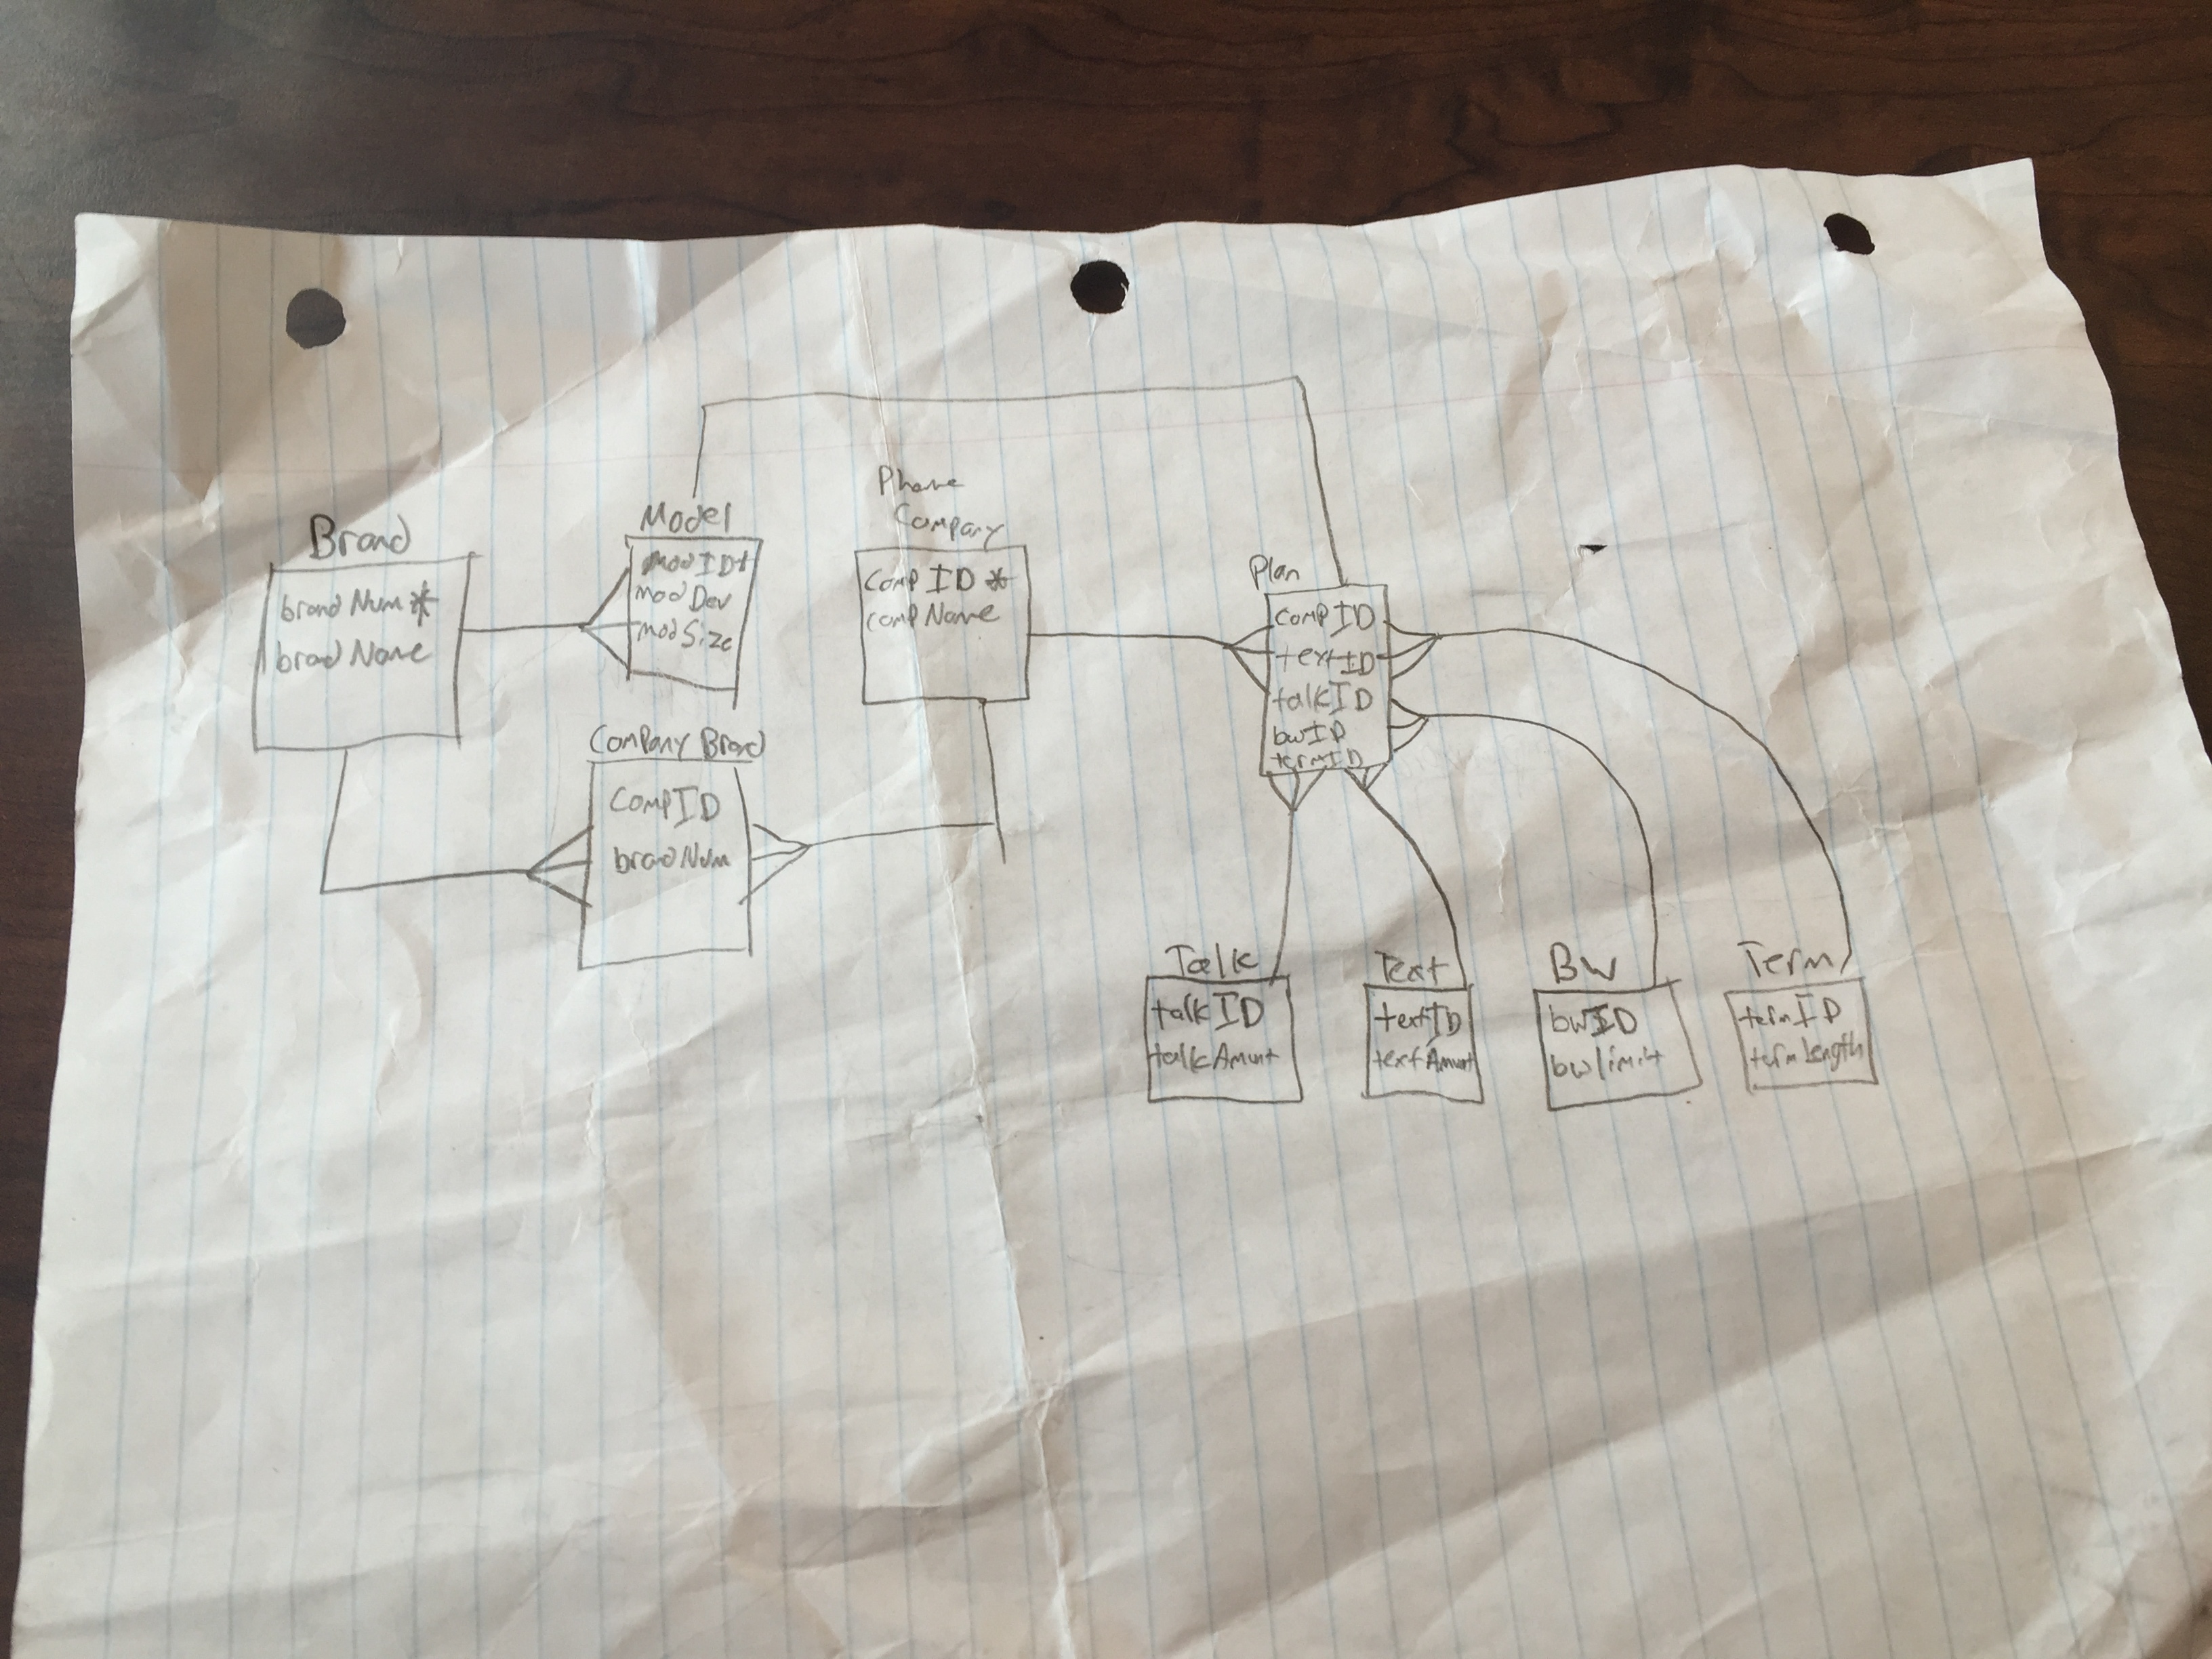 Brand
brandNum*
bradName
Model
modID*
modDev
modSize
Phone
Company
CompID *
compName
Plan
CompID
textID
talkID
bwID
termID
Company Brand
CompID
bradNum
Talk
talkID
talkAmunt
Text
textID
textAmunt
BW
bwID
bwlimit
Term
termID
termLength